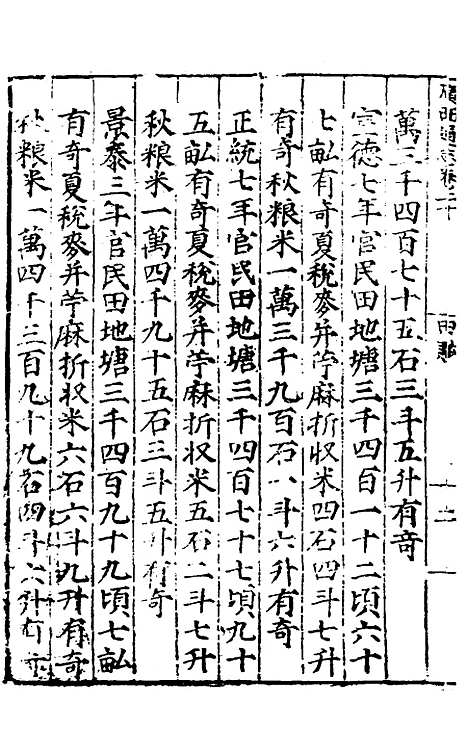 萬三千四百七十五石三斗五升有奇
宣德七年官民田地塘三千四百一十二頃六十
七畝有奇夏稅麥并苧麻折收米四石四斗七升
有奇秋粮米一萬三千九百石八斗六升有奇
正統七年官民田地塘三千四百七十七頃九十
五畝有奇夏稅麥并苧麻折收米五石二斗七升
秋粮米一萬四千九十五石三斗五升有奇
景泰三年官民田地塘三千四百九十九頃七畝
有奇夏稅麥并苧麻折收米六石六斗九升有奇
秋粮米一萬四千三百九十九石四斗六升有奇